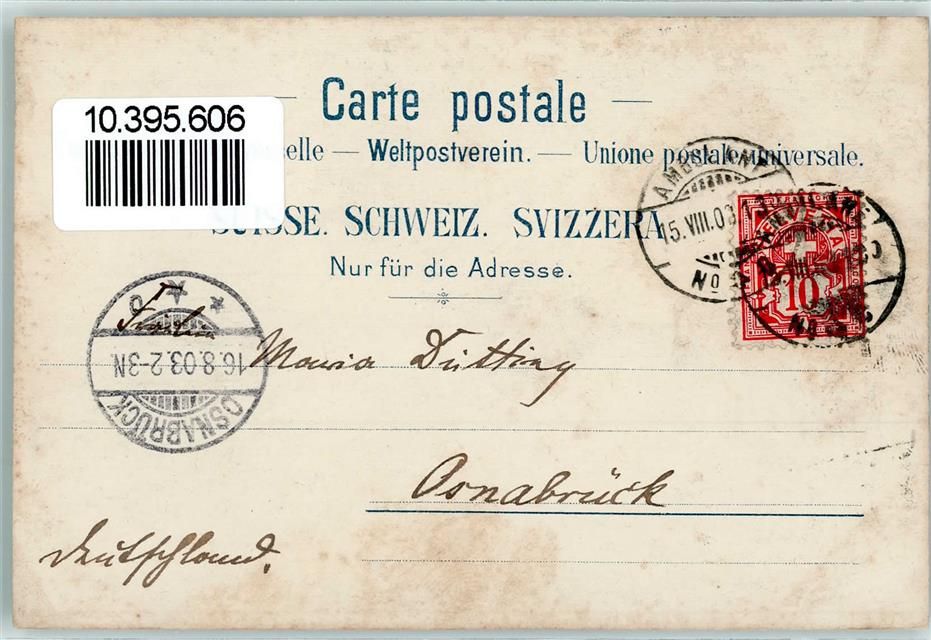 Carte postale
10.395.606
selle — Weltpostverein. — Unione postale universale.
SUISSE. SCHWEIZ. SVIZZERA
Nur für die Adresse.
AMBULANT
15.VIII.03
No
HELVETIA
10
No
Fräulein Maria Dütting
16.8.03.2-3N.
OSNABRÜCK
Osnabrück
Deutschland.